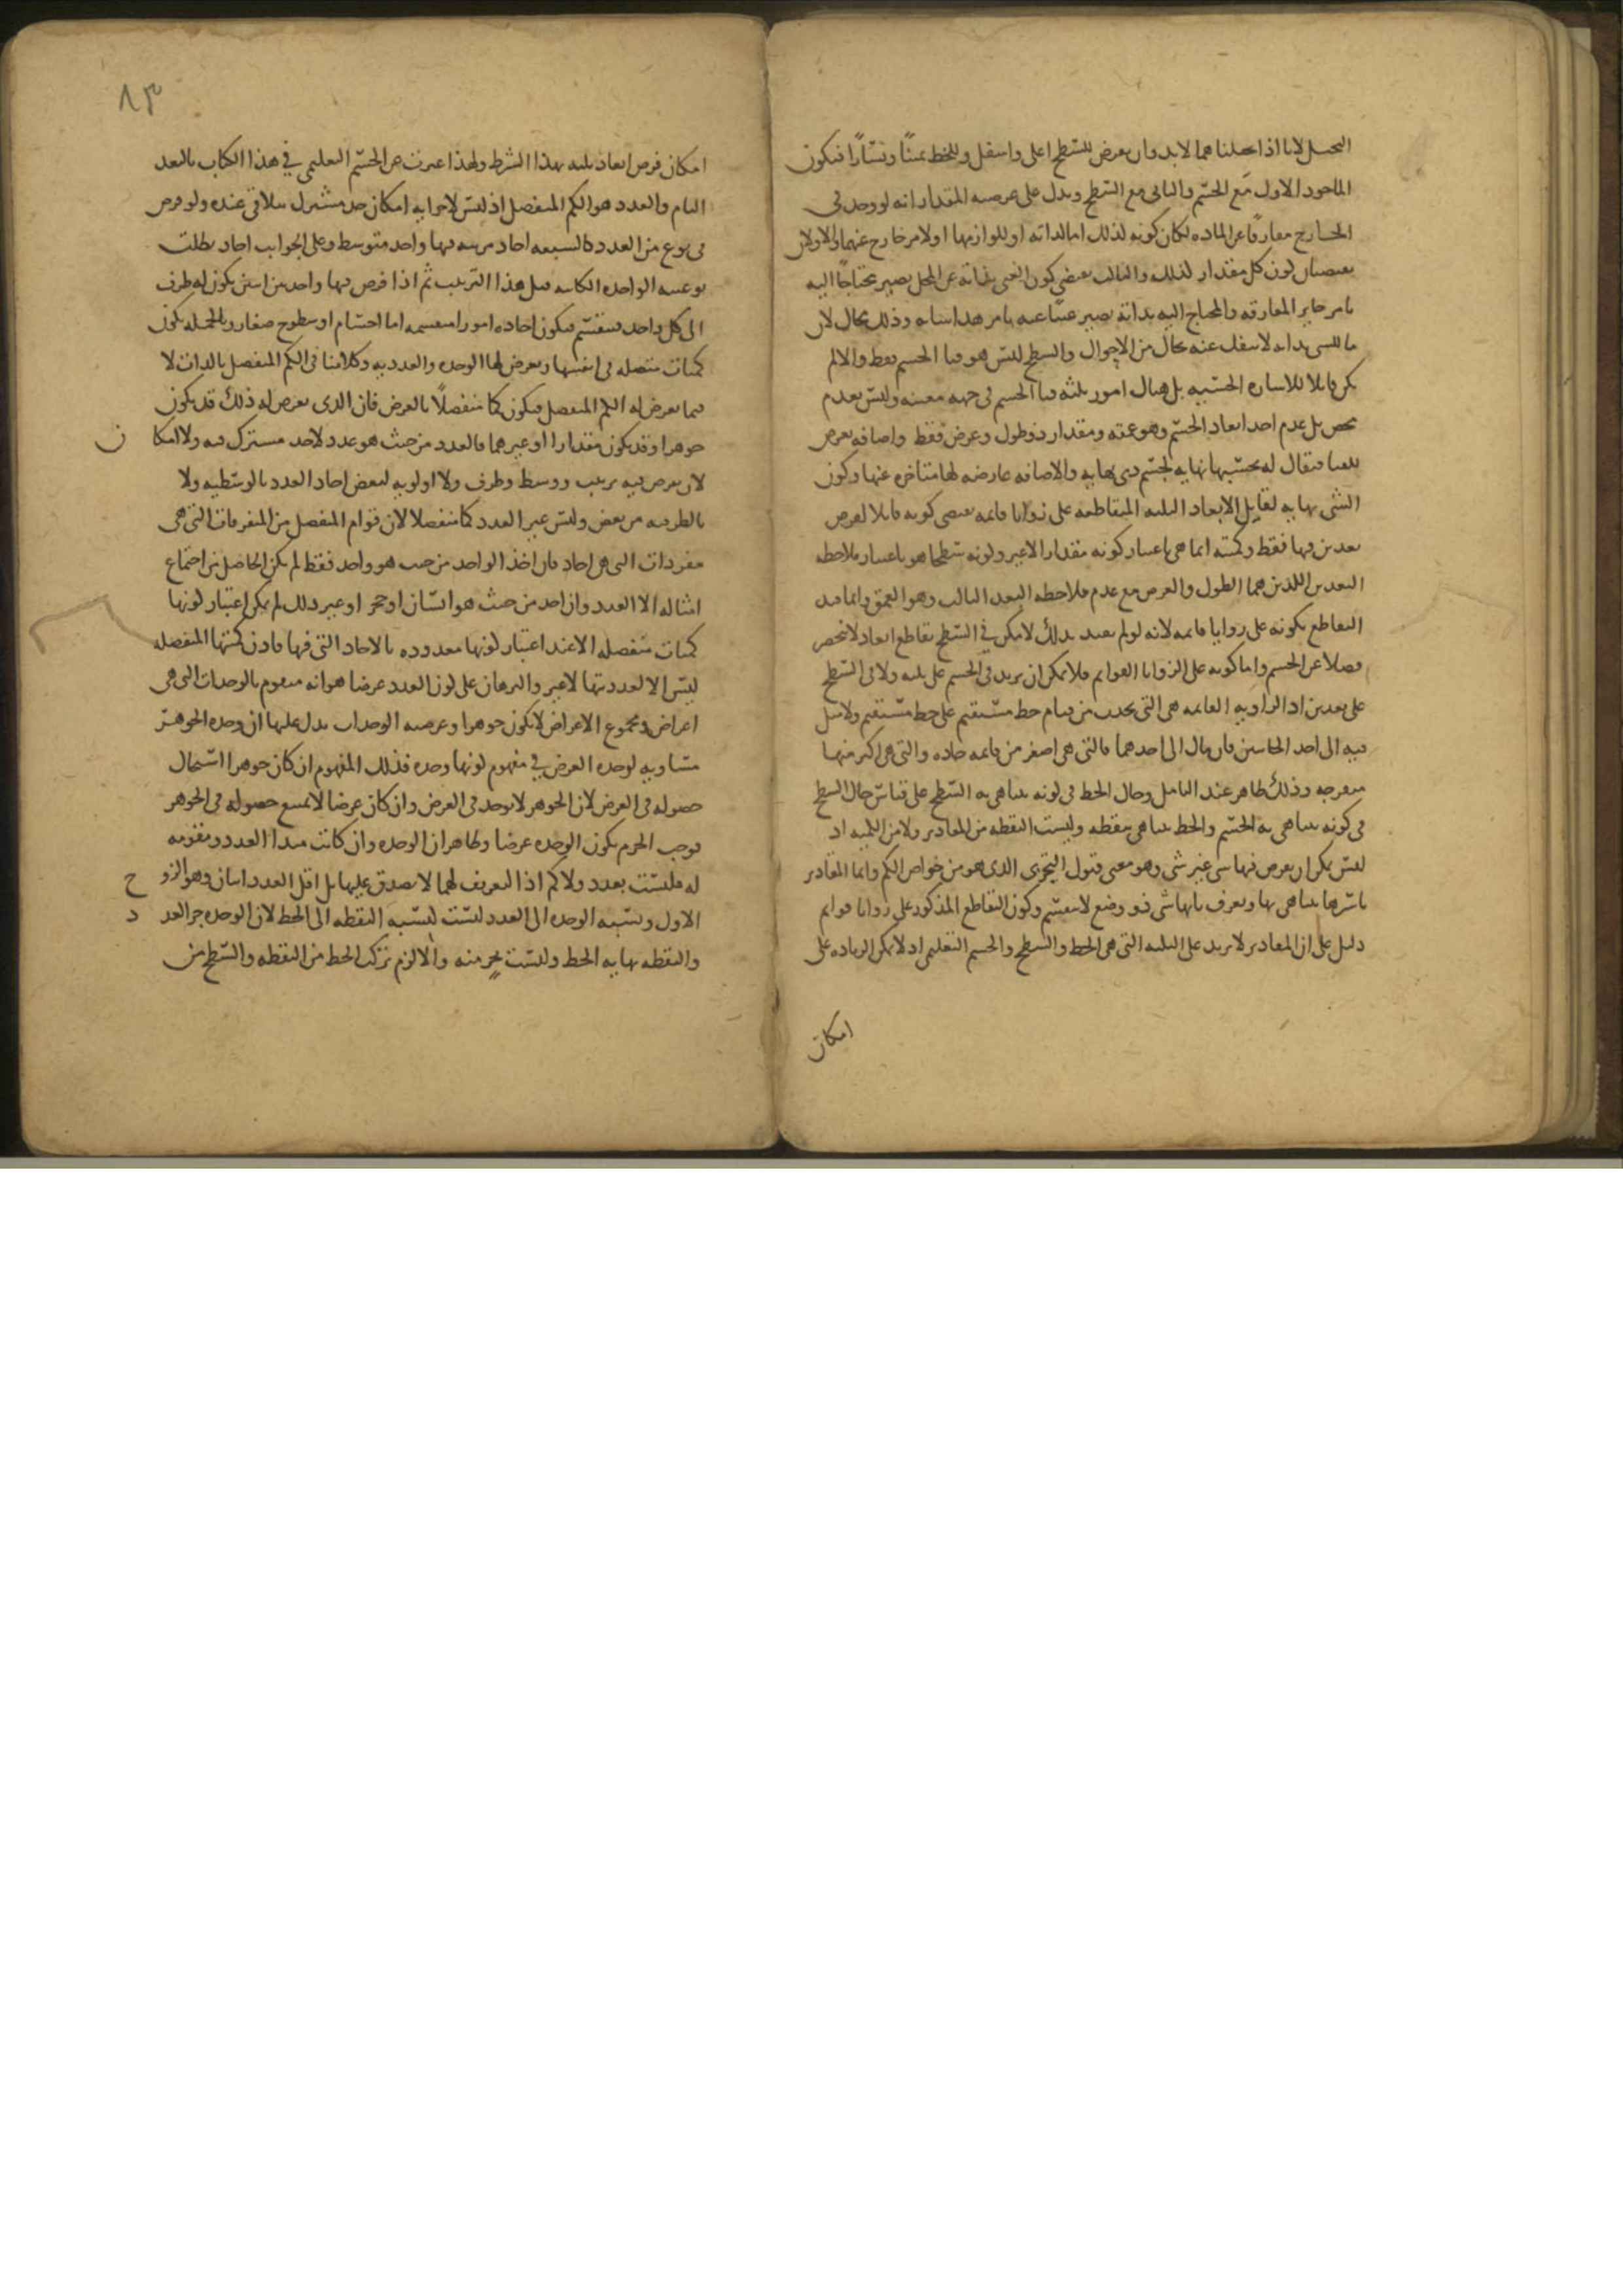 التخيل لانا اذا تخيلناهما لابد وان يعرض للسطح اعلى واسفل وللخط يمينًا ويسارًا فيكون
الماخوذ الاول مع الجسم والثاني مع السطح ويدل على عرضيه المقدار انه لو وجد في
الخارج مفارقًا عن الماده لكان كونه لذلك اما لذاته او للوازمها او لامر خارج عنهما والاولان
يقتضيان كون كل مقدار كذلك والثالث يقتضي كون الغني بذاته عن المحل يصير محتاجًا اليه
بامر خارج المفارقه والمحتاج اليه بذاته يصير غنيًا عنه بامر وذلك محال لان
ما للشي بذاته لا ينفك عنه بحال من الاحوال والسطح ليس هو فنا الجسم فقط والا لم
يكن قابلا للاشاره الحسيه بل هناك امور ثلثه فنا الجسم في جهه معينه وليس بعدم
محض بل عدم احد ابعاد الجسم وهو عمقه ومقدار ذو طول وعرض فقط واضافه تعرض
للفنا فيقال له بحسبها نهايه لجسم ذي نهايه والاضافه عارضه لها متاخره عنها وكون
الشي نهايه لقابل الابعاد الثلثه المتقاطعه على زوايا قائمه يقتضي كونه قابلا لفرض
بعدين فيها فقط وكميته انما هي باعتبار كونه مقدارا لاغير وكونه سطحا هو باعتبار ملاحظه
البعدين اللذين هما الطول والعرض مع عدم ملاحظه البعد الثالث وهو العمق وانما قيد
التقاطع بكونه على زوايا قائمه لانه لو لم يقيد بذلك لامكن في السطح تقاطع ابعاد لا تنحصر
فضلا عن الجسم واما كونه على الزوايا القوايم فلا يمكن ان يزيد في الجسم على ثلثه ولا في السطح
على بعدين اذ الزاويه القائمه هي التي تحدث من قيام خط مستقيم على خط مستقيم ولا ميل
فيه الى احد الجانبين فان مال الى احدهما فالتي هي اصغر من قائمه حاده والتي هي اكبر منها
منفرجه وذلك ظاهر عند التامل وحال الخط في كونه يتناهى به السطح على قياس حال السطح
في كونه يتناهى به الجسم والخط يتناهى بنقطه وليست النقطه من المقادير ولا من الكميه اذ
ليس يمكن ان يعرض فيها شي غير شي وهو معنى قبول التجزي الذي هو من خواص الكم وانما المقادير
باسرها يتناهى بها وتعرف بانها شي ذو وضع لا ينقسم وكون التقاطع المذكور على زوايا قوايم
دليل على ان المقادير لا تزيد على الثلثه التي هي الخط والسطح والجسم التعليمي اذ لا يمكن الزياده على
امكان
٨٣
امكان فرض ابعاد ثلثه بهذا الشرط ولهذا عبرت عن الجسم التعليمي في هذا الكتاب بالبعد
التام والعدد هو الكم المنفصل اذ ليس لاجزايه امكان حد مشترك يتلاقى عنده ولو فرض
في نوع من العدد كالسبعه احاد مرتبه فيها واحد متوسط وعلى الجوانب احاد بطلت
نوعيته الواحده الكائنه قبل هذا الترتيب ثم اذا فرض فيها واحد بين اثنين يكون له طرف
الى كل واحد فينقسم فيكون احاده امورا منقسمه اما اجسام او سطوح صغار وبالجمله يكون
كميات متصله في انفسها ويعرض لها الوحده والعدديه وكلامنا في الكم المنفصل بالذات لا
فيما يعرض له الكم المنفصل فيكون كما منفصلا بالعرض فان الذي يعرض له ذلك قد يكون
جوهرا وقد يكون مقدارا او غيرهما فالعدد من حيث هو عدد لا حد مشترك فيه ولا امكا ن
لان يعرض فيه ترتيب ووسط وطرف ولا اولويه لبعض احاد العدد بالوسطيه ولا
بالطرفيه من بعض وليس غير العدد كما منفصلا لان قوام المنفصل من المتفرقات التي هي
مفردات التي هي احاد فان اخذ الواحد من حيث هو واحد فقط لم يكن الحاصل من اجتماع
امثاله الا العدد وان اخذ من حيث هو انسان او حجر او غير ذلك لم يمكن اعتبار كونها
كميات منفصله الا عند اعتبار كونها معدوده بالاحاد التي فيها فاذن كميتها المنفصله
ليس الا لعدديتها لاغير والبرهان على كون العدد عرضا هو انه متقوم بالوحدات التي هي
اعراض ومجموع الاعراض لا يكون جوهرا وعرضيه الوحدات يدل عليها ان وحده الجوهر
مساويه لوحده العرض في مفهوم كونها وحده فذلك المفهوم ان كان جوهرا استحال
حصوله في العرض لان الجوهر لا يوجد في العرض وان كان عرضا لا يمتنع حصوله في الجوهر
فوجب الجزم بكون الوحده عرضا وظاهر ان الوحده وان كانت مبدا العدد ومقومه
له فليست بعدد ولا كم اذ التعريف لهما لا يصدق عليها بل اقل العدد اثنان وهو الزو ج
الاول ونسبه الوحده الى العدد ليست كنسبه النقطه الى الخط لان الوحده جز العد د
والنقطه نهايه الخط وليست بجز منه والا لزم تركب الخط من النقطه والسطح من